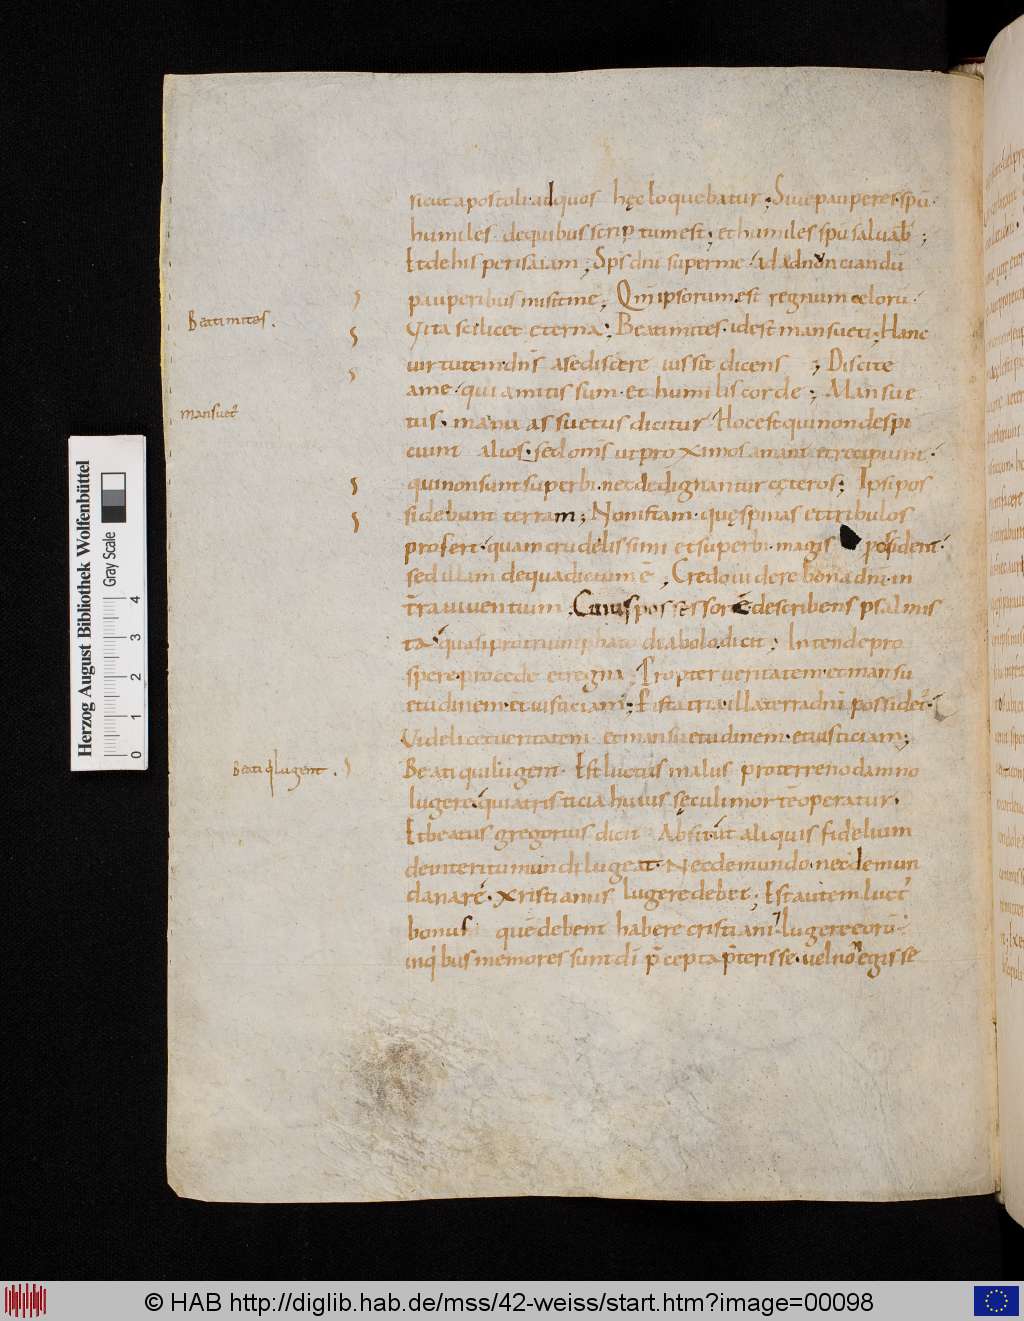 sicut apostoli. ad quos hęc loquebatur; Siue pauperes spū.
humiles. de quibus scriptum est; et humiles spū saluab;
Et de his per isaiam; Sps dni super me. ad adnonciandū
pauperibus misit me; Qm ipsorum est regnum celorū.
Beati mites.
Vita scilicet eterna; Beati mites. id est mansueti; Hanc
uirtutem dns a se discere iussit dicens; Discite
a me. quia mitis sum. et humilis corde; Mansue
mansuet
tus. manu assuetus dicitur. Hoc est qui non despi
ciunt alios. sed omis ut proximos amant et recipiunt.
qui non sunt superbi. nec dedignantur cęteros; Ipsi pos
sidebunt terram; Non istam. quę spinas et tribulos
profert. quam crudelissimi et superbi. magis possident.
sed illam de qua dictum ē; Credo uidere bona dni. in
tra uiuentium. Cuius possessorē describens psalmis
ta. quasi pro triumphato diabolo. dicit; Intende pro
spere. procede et regna; Propter ueritatem et mansu
etudinem. et iusticiam; Et ista tria. illa terra dni possidet.
Videlicet ueritatem et mansuetudinem. et iusticiam;
Beati q lugent.
Beati qui lugent. Est luctus malus pro terreno damno
lugere. quia tristicia huius sęculi mortē operatur.
Et beatus gregorius dicit Absit. ut aliquis fidelium
de interitu mundi lugeat. Nec de mundo. nec de mun
danare. xristianus lugere debet; Est autem luct
bonus quem debent habere cristiani. lugere eorū.
inq̇bus memores sunt di p̄cepta p̄terisse. uel nō egisse
Herzog August Bibliothek Wolfenbüttel
Gray Scale
0 1 2 3 4
© HAB http://diglib.hab.de/mss/42-weiss/start.htm?image=00098